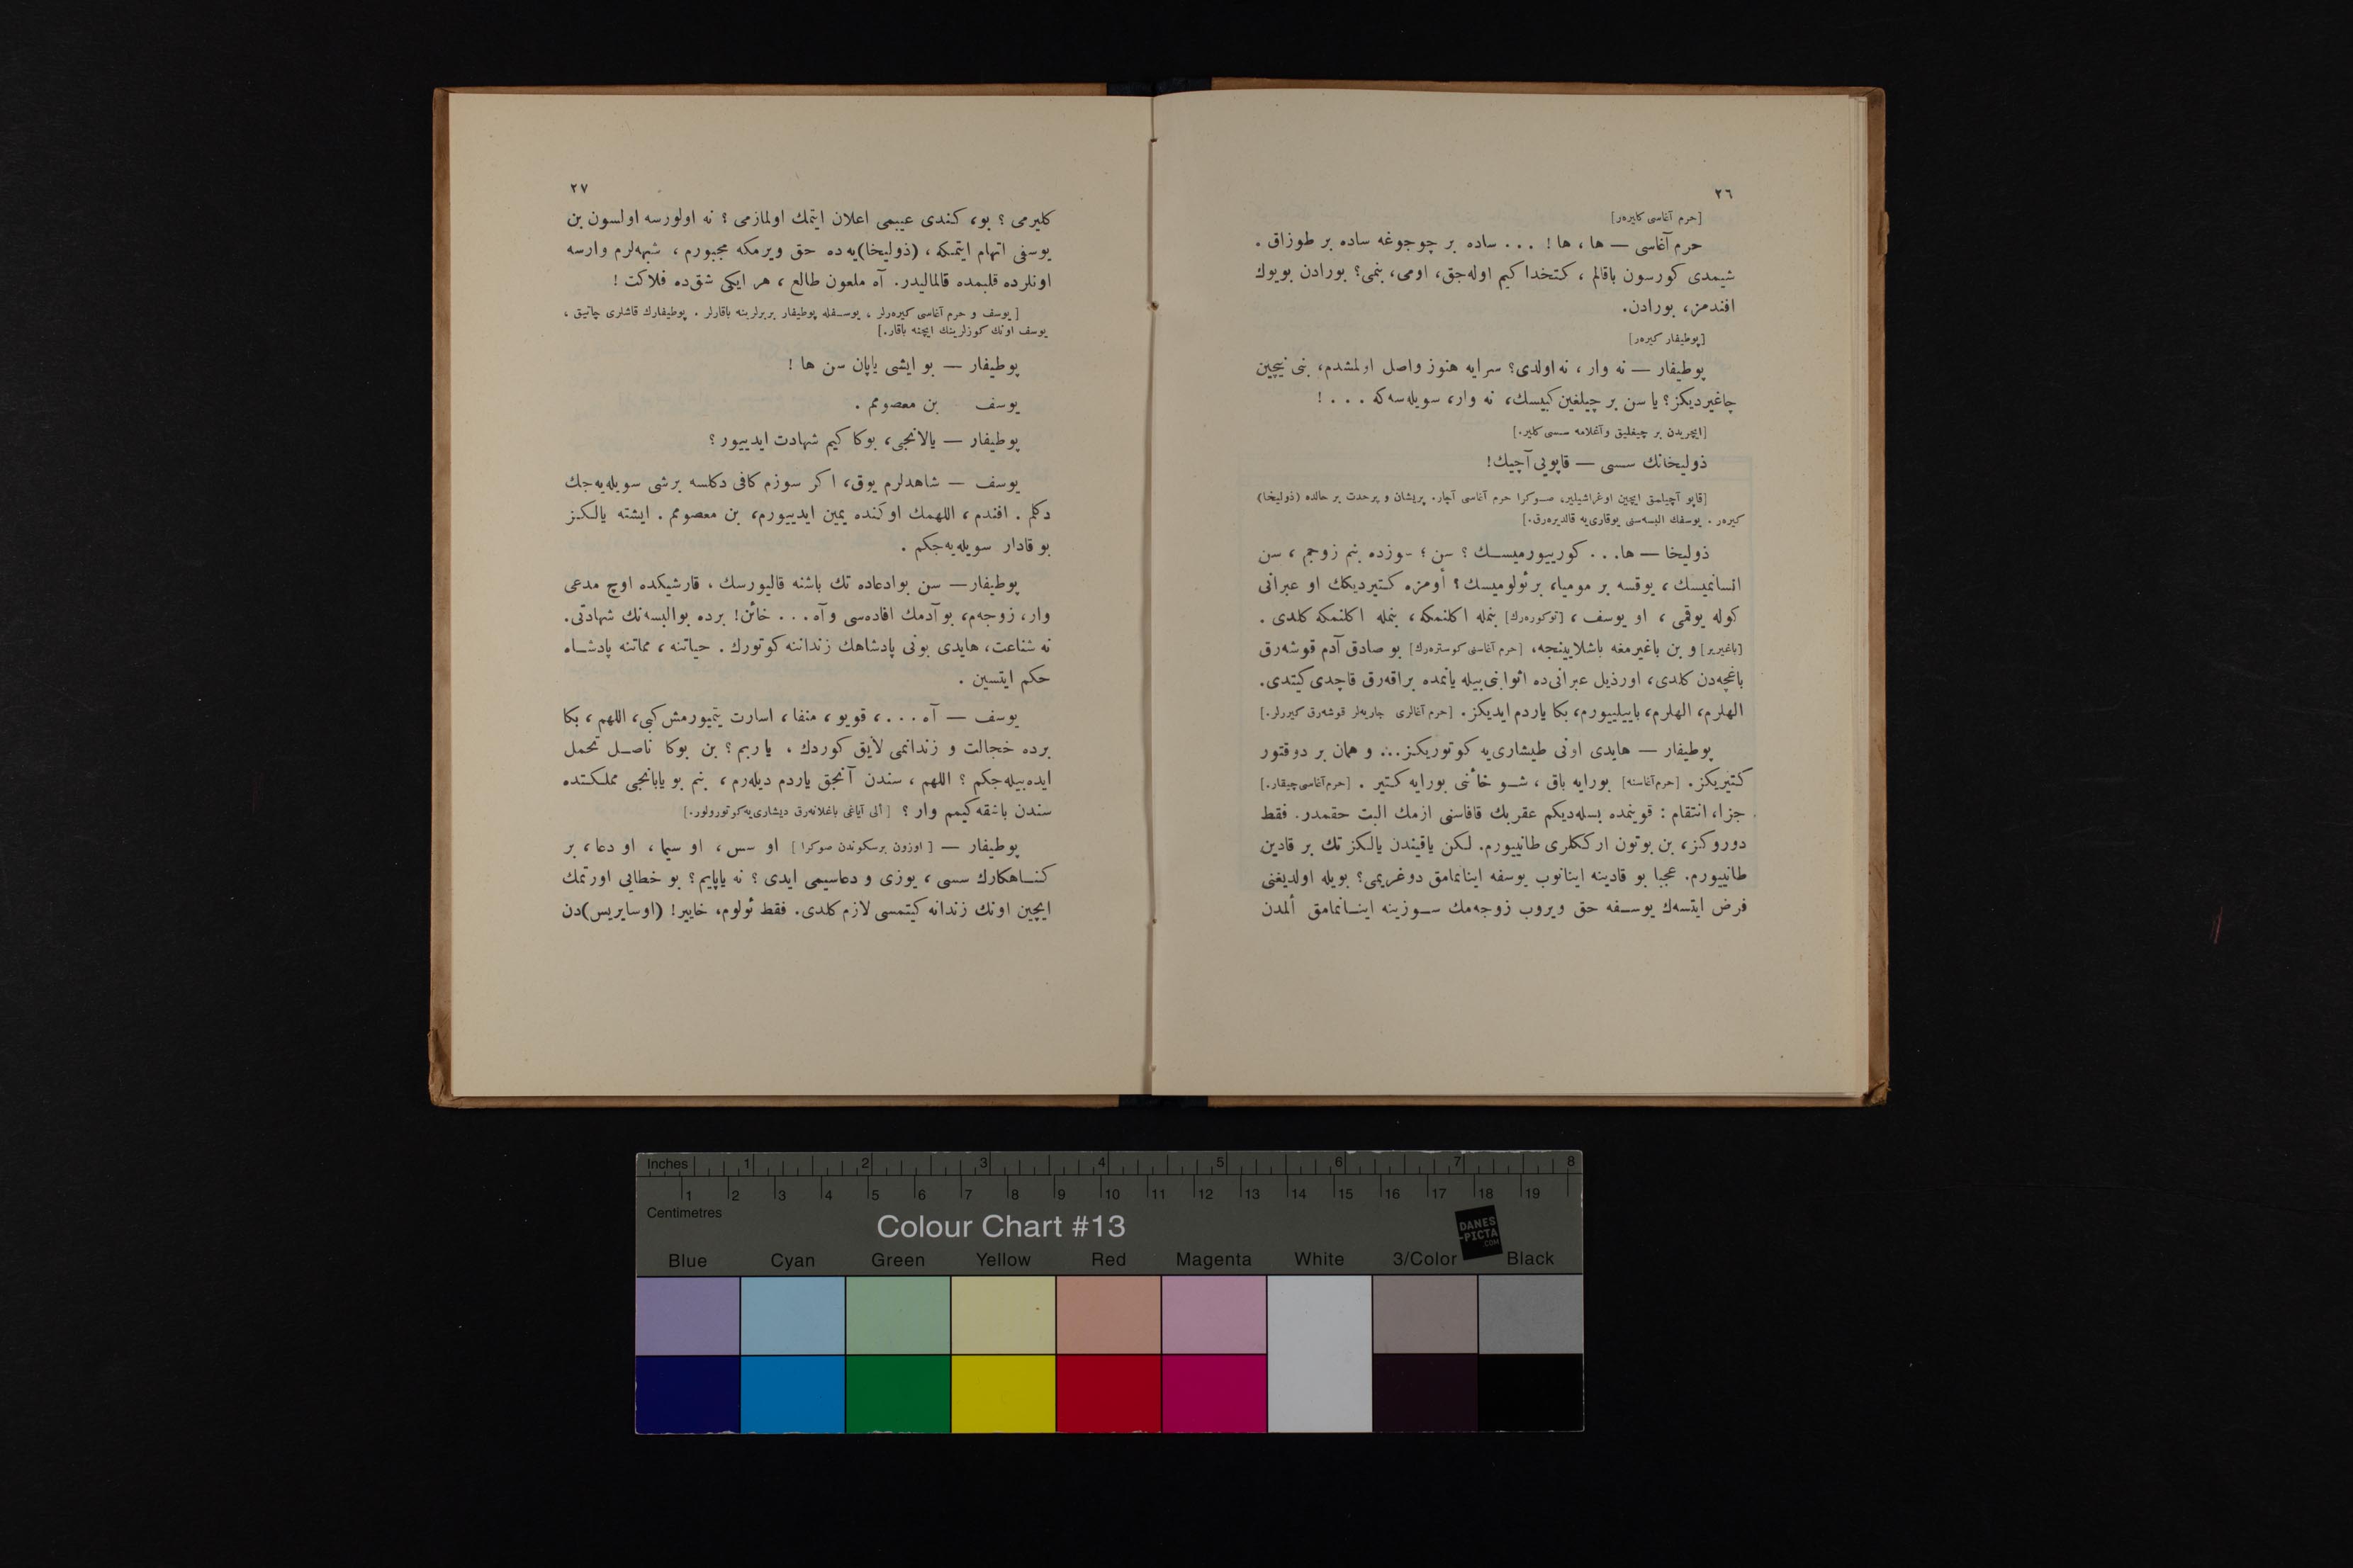 ٢٦
[حرم آغاسی كلیره‌ر]
حرم آغاسی — ها ، ها ! ... ساده بر چوجوغه ساده بر طوزاق .
شیمدی كورسون باقالم ، كتخدا كیم اوله‌جق ، اومی ، بنمی ؟ بورادن بویوك
افندمز ، بورادن.
[پوطیفار كیره‌ر]
پوطیفار — نه وار ، نه اولدی؟ سرایه هنوز واصل اولمشدم، بنی نیچین
چاغیردیكز ؟ یا سن بر چیلغین كبیسك، نه وار، سویله‌سه‌كه ... !
[ایچریدن بر چیغلیق وآغلامه سسی كلیر.]
ذولیخانك سسی — قاپویی آچیك!
[قاپو آچیلمق ایچین اوغراشیلیر، صوكرا حرم آغاسی آچار. پریشان و پرحدت بر حالده (ذولیخا)
كیره‌ر . یوسفك البسه‌سنی یوقاری‌یه قالدیره‌رق.]
ذولیخا — ها... كورییورمیسك ؟ سن ؛ سوزده بنم زوجم ، سن
انسانمیسك ، یوقسه بر مومیا، بر ئولومیسك ؟ أومزه كتیردیكك او عبرانی
كوله یوقمی ، او یوسف ، [توكوره‌رك] بنمله اكلنمكه ، بنمله اكلنمكه كلدی .
[باغیریر] و بن باغیرمغه باشلایینجه، [حرم آغاسنی كوستره‌رك] بو صادق آدم قوشه‌رق
باغچه‌دن كلدی، اورذیل عبرانی‌ده اثوابنی‌بیله یانمده براقه‌رق قاچدی كیتدی.
الهلرم، الهلرم، باییلییورم، بكا یاردم ایدیكز. [حرم آغالری جاریه‌لر قوشه‌رق كیررلر.]
پوطیفار — هایدی اونی طیشاری‌یه كوتوریكز... و همان بر دوقتور
كتیریكز . [حرم‌آغاسنه] بورایه باق ، شو خائنی بورایه كتیر . [حرم‌آغاسی‌چیقار.]
جزا، انتقام : قوینمده بسله‌دیكم عقربك قافاسنی ازمك البت حقمدر . فقط
دوروكز، بن بوتون ارككلری طانییورم. لكن یاقیندن یالكز تك بر قادین
طانییورم. عجبا بو قادینه اینانوب یوسفه اینانمامق دوغریمی؟ بویله اولدیغنی
فرض ایتسه‌ك یوسفه حق ویروب زوجه‌مك سوزینه اینانمامق ألمدن
٢٧
كلیرمی ؟ بو، كندی عیبمی اعلان ایتمك اولمازمی ؟ نه اولورسه اولسون بن
یوسفی اتهام ایتمكه ، (ذولیخا)یه ده حق ویرمكه مجبورم ، شبهه‌لرم وارسه
اونلرده قلبمده قالمالیدر. آه ملعون طالع ، هر ایكی شق ده فلاكت !
[یوسف و حرم آغاسی كیره‌رلر ، یوسفله پوطیفار بربرلرینه باقارلر . پوطیفارك قاشلری چاتیق ،
یوسف اونك كوزلرینك ایچنه باقار.]
پوطیفار — بو ایشی یاپان سن ها !
یوسف بن معصومم .
پوطیفار — یالانجی، بوكا كیم شهادت ایدییور ؟
یوسف — شاهدلرم یوق، اكر سوزم كافی دكلسه برشی سویله‌یه‌جك
دكلم . افندم ، اللهمك اوكنده یمین ایدییورم، بن معصومم . ایشته یالكز
بو قادار سویله‌یه‌جكم .
پوطیفار — سن بوادعاده تك باشنه قالیورسك ، قارشیكده اوچ مدعی
وار، زوجه‌م، بو آدمك افاده‌سی وآه ... خائن! برده بوالبسه‌نك شهادتی.
نه شناعت، هایدی بونی پادشاهك زنداننه كوتورك . حیاتنه ، مماتنه پادشاه
حكم ایتسین .
یوسف — آه ... ، قویو ، منفا ، اسارت یتمیورمش كبی، اللهم ، بكا
برده خجالت و زندانمی لایق كوردك ، یا ربم ؟ بن بوكا ناصل تحمل
ایده‌بیله‌جكم ؟ اللهم ، سندن آنجق یاردم دیله‌رم ، بنم بو یابانجی مملكتده
سندن باشقه كیمم وار ؟ [ألی آیاغی باغلانه‌رق دیشاری‌یه‌كوتورولور.]
پوطیفار — [اوزون برسكوندن صوكرا] او سس، او سیما ، او دعا ، بر
كناهكارك سسی ، یوزی و دعاسیمی ایدی ؟ نه یاپایم؟ بو خطایی اورتمك
ایچین اونك زندانه كیتمسی لازم كلدی. فقط ئولوم، خاییر! (اوسایریس)دن
Inches 1 2 3 4 5 6 7 8
1 2 3 4 5 6 7 8 9 10 11 12 13 14 15 16 17 18 19
Centimetres
Colour Chart #13
DANES
-PICTA
.COM
Blue Cyan Green Yellow Red Magenta White 3/Color Black